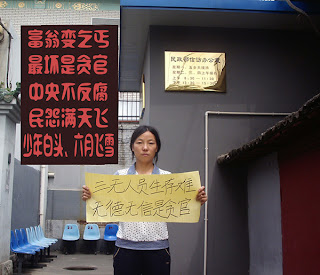 富翁变乞丐
最坏是贪官
中央不反腐
民怨满天飞
少年白头、六月飞雪
民政部信访办公室
三无人员生存难
无德无信是贪官